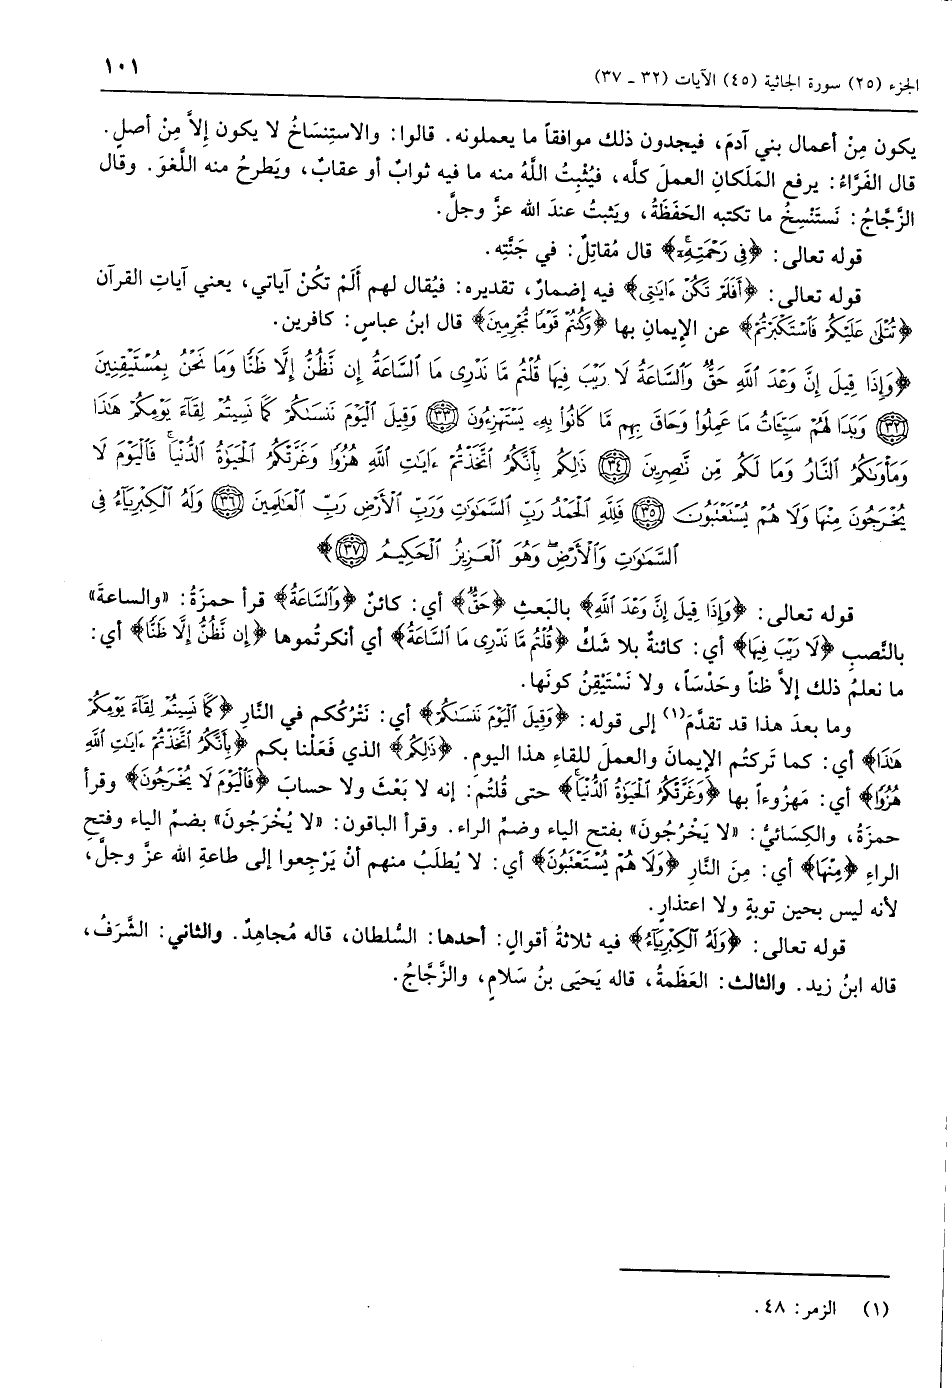 الجزء (٢٥) سورة الجاثية (٤٥) الآيات (٣٢ - ٣٧)
١٠١
يكون مِنْ أعمال بني آدمَ، فيجدون ذلك موافقاً ما يعملونه. قالوا: والاستِنسَاخُ لا يكون إلاَّ مِنْ أصلٍ.
قال الفَرَّاءُ: يرفع المَلَكانِ العملَ كلَّه، فيُثْبِتُ اللَّهُ منه ما فيه ثوابٌ أو عقابٌ، ويَطرحُ منه اللَّغوَ. وقال
الزَّجَّاجُ: نَستَنْسِخُ ما تكتبه الحَفَظَةُ، ويَثبتُ عندَ الله عزَّ وجلَّ.
قوله تعالى: ﴿فِى رَحْمَتِهِۦ﴾ قال مُقاتِلٌ: في جَنَّتِه.
قوله تعالى: ﴿أَفَلَمْ تَكُنْ ءَايَٰتِى﴾ فيه إضمارٌ، تقديره: فيُقال لهم أَلَمْ تكُنْ آياتي، يعني آياتِ القرآن
﴿تُتْلَىٰ عَلَيْكُمْ فَٱسْتَكْبَرْتُمْ﴾ عن الإيمانِ بها ﴿وَكُنتُمْ قَوْمًا مُّجْرِمِينَ﴾ قال ابنُ عباسٍ: كافرين.
﴿وَإِذَا قِيلَ إِنَّ وَعْدَ ٱللَّهِ حَقٌّ وَٱلسَّاعَةُ لَا رَيْبَ فِيهَا قُلْتُم مَّا نَدْرِى مَا ٱلسَّاعَةُ إِن نَّظُنُّ إِلَّا ظَنًّا وَمَا نَحْنُ بِمُسْتَيْقِنِينَ
﴿٣٢﴾ وَبَدَا لَهُمْ سَيِّـَٔاتُ مَا عَمِلُوا۟ وَحَاقَ بِهِم مَّا كَانُوا۟ بِهِۦ يَسْتَهْزِءُونَ ﴿٣٣﴾ وَقِيلَ ٱلْيَوْمَ نَنسَىٰكُمْ كَمَا نَسِيتُمْ لِقَآءَ يَوْمِكُمْ هَٰذَا
وَمَأْوَىٰكُمُ ٱلنَّارُ وَمَا لَكُم مِّن نَّٰصِرِينَ ﴿٣٤﴾ ذَٰلِكُم بِأَنَّكُمُ ٱتَّخَذْتُمْ ءَايَٰتِ ٱللَّهِ هُزُوًا وَغَرَّتْكُمُ ٱلْحَيَوٰةُ ٱلدُّنْيَا ۚ فَٱلْيَوْمَ لَا
يُخْرَجُونَ مِنْهَا وَلَا هُمْ يُسْتَعْتَبُونَ ﴿٣٥﴾ فَلِلَّهِ ٱلْحَمْدُ رَبِّ ٱلسَّمَٰوَٰتِ وَرَبِّ ٱلْأَرْضِ رَبِّ ٱلْعَٰلَمِينَ ﴿٣٦﴾ وَلَهُ ٱلْكِبْرِيَآءُ فِى
ٱلسَّمَٰوَٰتِ وَٱلْأَرْضِ ۖ وَهُوَ ٱلْعَزِيزُ ٱلْحَكِيمُ ﴿٣٧﴾﴾
قوله تعالى: ﴿وَإِذَا قِيلَ إِنَّ وَعْدَ ٱللَّهِ﴾ بالبَعثِ ﴿حَقٌّ﴾ أي: كائنٌ ﴿وَٱلسَّاعَةُ﴾ قرأ حمزَةُ: «والساعةَ»
بالنَّصبِ ﴿لَا رَيْبَ فِيهَا﴾ أي: كائنةٌ بلا شكٍّ ﴿قُلْتُم مَّا نَدْرِى مَا ٱلسَّاعَةُ﴾ أي أنكرتُموها ﴿إِن نَّظُنُّ إِلَّا ظَنًّا﴾ أي:
ما نعلمُ ذلك إلاَّ ظناً وحَدْسَاً، ولا نَسْتَيْقِنُ كونَها.
وما بعدَ هذا قد تقدَّمَ(١) إلى قوله: ﴿وَقِيلَ ٱلْيَوْمَ نَنسَىٰكُمْ﴾ أي: نَتْرُكُكم في النَّارِ ﴿كَمَا نَسِيتُمْ لِقَآءَ يَوْمِكُمْ
هَٰذَا﴾ أي: كما تَركتُم الإيمانَ والعملَ للقاءِ هذا اليومِ. ﴿ذَٰلِكُم﴾ الذي فَعَلْنا بكم ﴿بِأَنَّكُمُ ٱتَّخَذْتُمْ ءَايَٰتِ ٱللَّهِ
هُزُوًا﴾ أي: مَهزُوءاً بها ﴿وَغَرَّتْكُمُ ٱلْحَيَوٰةُ ٱلدُّنْيَا﴾ حتى قُلتُم: إنه لا بَعْثَ ولا حسابَ ﴿فَٱلْيَوْمَ لَا يُخْرَجُونَ﴾ وقرأ
حمزَةُ، والكِسَائيُّ: «لا يَخْرُجُونَ» بفتح الياء وضمِّ الراء. وقرأ الباقون: «لا يُخْرَجُونَ» بضم الياء وفتحِ
الراءِ ﴿مِنْهَا﴾ أي: مِنَ النَّارِ ﴿وَلَا هُمْ يُسْتَعْتَبُونَ﴾ أي: لا يُطلَبُ منهم أنْ يَرْجِعوا إلى طاعةِ الله عزَّ وجلَّ،
لأنه ليس بحين توبةٍ ولا اعتذارٍ.
قوله تعالى: ﴿وَلَهُ ٱلْكِبْرِيَآءُ﴾ فيه ثلاثةُ أقوالٍ: أحدها: السُّلطان، قاله مُجاهِدٌ. والثاني: الشَّرَفُ،
قاله ابنُ زيد. والثالث: العَظَمةُ، قاله يَحيَى بنُ سَلامٍ، والزَّجَّاجُ.
(١) الزمر: ٤٨.